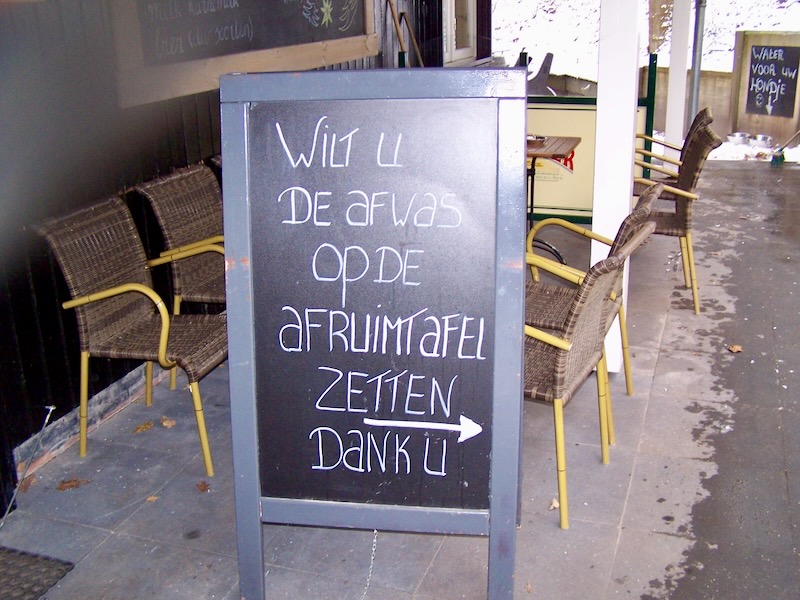 WILT U
DE AFWAS
OP DE
AFRUIMTAFEL
ZETTEN
DANK U
WATER
VOOR UW
HONDJE